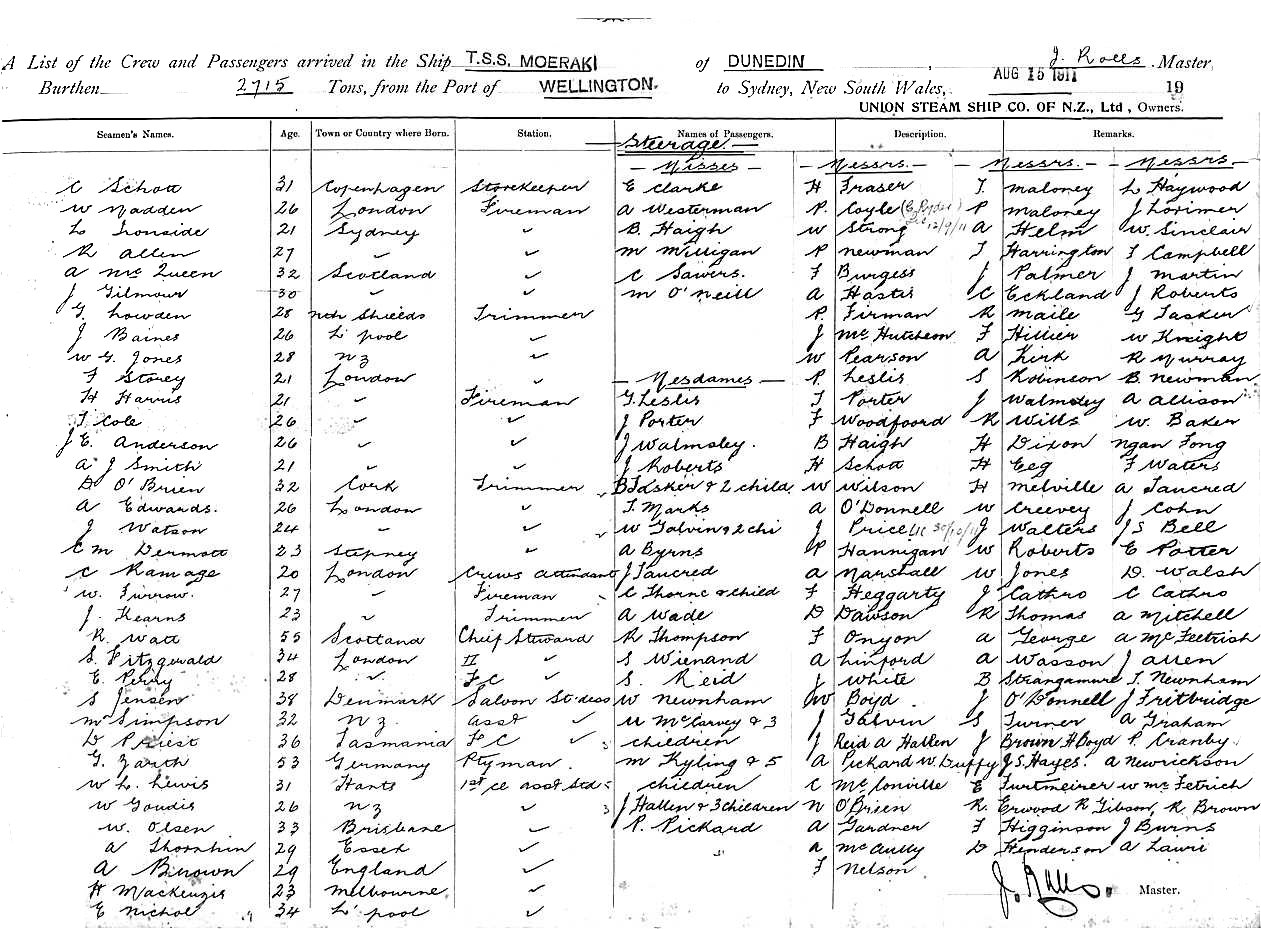 A List of the Crew and Passengers arrived in the Ship T.S.S. MOERAKI of DUNEDIN, J. Rolls Master,
Burthen 2715 Tons, from the Port of WELLINGTON. to Sydney, New South Wales, AUG 15 1911 19
UNION STEAM SHIP CO. OF N.Z., Ltd, Owners.
Seamen's Names. Age. Town or Country where Born. Station. Names of Passengers. Description. Remarks.
Steerage.
Misses Messrs. Messrs. Messrs.
C Schott 31 Copenhagen Storekeeper E Clarke H Fraser T. Maloney L Haywood
W Madden 26 London Fireman A Westerman P. Coyle (E Ryder) P Maloney J Lorimer
L Ironside 21 Sydney ✓ B. Haigh W Strong 12/9/11 A Helm W. Sinclair
R Allen 27 ✓ ✓ M Milligan P Newman T Harrington T Campbell
A McQueen 32 Scotland ✓ C Sawers. F Burgess J Palmer J Martin
J Gilmour 30 ✓ ✓ M O'Neill A Hastie C Eckland J Roberts
G. Lowden 28 Nth Shields Trimmer P. Firman R Maile G Tasker
J Baines 26 L'pool ✓ J McHutcheon F Hillier W Knight
W G. Jones 28 NZ ✓ W Pearson A Kirk R Murray
F Storey 21 London ✓ Mesdames P. Leslie S Robinson B. Newman
H Harris 21 ✓ Fireman G. Leslie T Porter J Walmsley A Allison
T Cole 26 ✓ ✓ J Porter F Woodfoord R Wills W. Baker
J E. Anderson 26 ✓ ✓ J Walmsley. B Haigh H Dixon Ngan Fong
A J Smith 21 ✓ ✓ J Roberts H Schott H Eeg F Waters
D O'Brien 32 Cork Trimmer B Tasker & 2 child. W Wilson H Melville A Tancred
A Edwards. 26 London ✓ T. Marks A O'Donnell W Creevey J Cohn
J Watson 24 ✓ ✓ W Galvin & 2 chi J Price 30/10/11 J Walters J S Bell
C McDermott 23 Stepney ✓ A Byrns P Hannigan W Roberts E Potter
C Ramage 20 London Crews Attendant J Tancred A Marshall W Jones D. Walsh
W. Furrow. 27 ✓ Fireman C Thorne & child F Heggarty J Cathro C Cathro
J. Kearns 23 ✓ Trimmer A Wade D Dawson R Thomas A Mitchell
R. Watt 55 Scotland Cheif Steward R Thompson F Onyon A George A McFeetrish
S. Fitzgerald 34 London II ✓ S Wienand A Linford A Wasson J Allen
E. Perry 28 ✓ F C ✓ S. Reid J White B Strangamure T. Newnham
S Jensen 38 Denmark Saloon Stdess W Newnham W Boyd J O'Donnell J Fritbridge
M Simpson 32 NZ. Asst ✓ M McGarvey & 3 J Galvin S Turner A Graham
D Priest 36 Tasmania F C ✓ 3 children J Reid A Hallen J Brown H Boyd P. Cranby.
G. Zarth 53 Germany Ptyman. M Kyling & 5 A Pickard W. Duffy J S. Hayes. A Newrickson
W L. Lewis 31 Hants 1st cl asst Std 5 children C McConville E Furtmeirer W McFetrich
W Goudie 26 NZ ✓ 3 J Hallen & 3 children N O'Brien R. Erwood R Gibson, R Brown
W. Olsen 33 Brisbane ✓ P. Pickard A Gardner F Higginson J Burns
A Thornhin 29 Essex ✓ A McAully D Henderson A Lawri
A Brown 29 England ✓ F Nelson
H Mackenzie 23 Melbourne ✓ J. Rolls. Master.
E Nichol 34 L'pool ✓